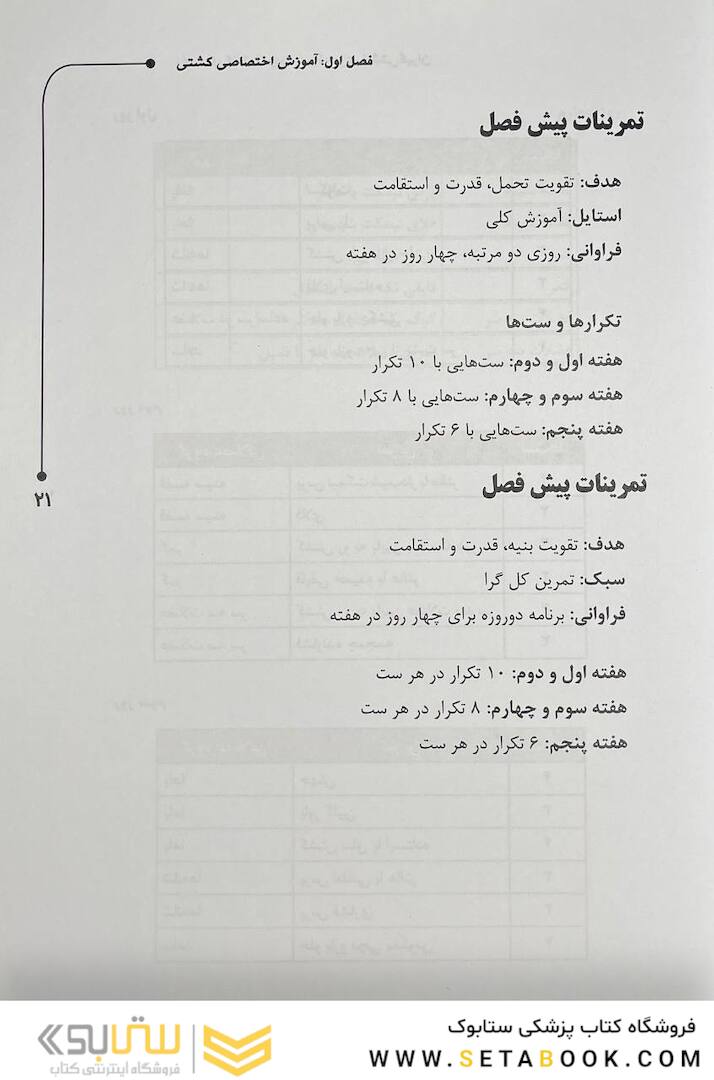 فصل اول: آموزش اختصاصی کشتی
تمرینات پیش فصل
هدف: تقویت تحمل، قدرت و استقامت
استایل: آموزش کلی
فراوانی: روزی دو مرتبه، چهار روز در هفته
تکرارها و ست‌ها
هفته اول و دوم: ست‌هایی با ۱۰ تکرار
هفته سوم و چهارم: ست‌هایی با ۸ تکرار
هفته پنجم: ست‌هایی با ۶ تکرار
۲۱
تمرینات پیش فصل
هدف: تقویت بنیه، قدرت و استقامت
سبک: تمرین کل گرا
فراوانی: برنامه دوروزه برای چهار روز در هفته
هفته اول و دوم: ۱۰ تکرار در هر ست
هفته سوم و چهارم: ۸ تکرار در هر ست
هفته پنجم: ۶ تکرار در هر ست
فروشگاه کتاب پزشکی ستابوک
WWW.SETABOOK.COM
ستابوک
فروشگاه اینترنتی کتاب